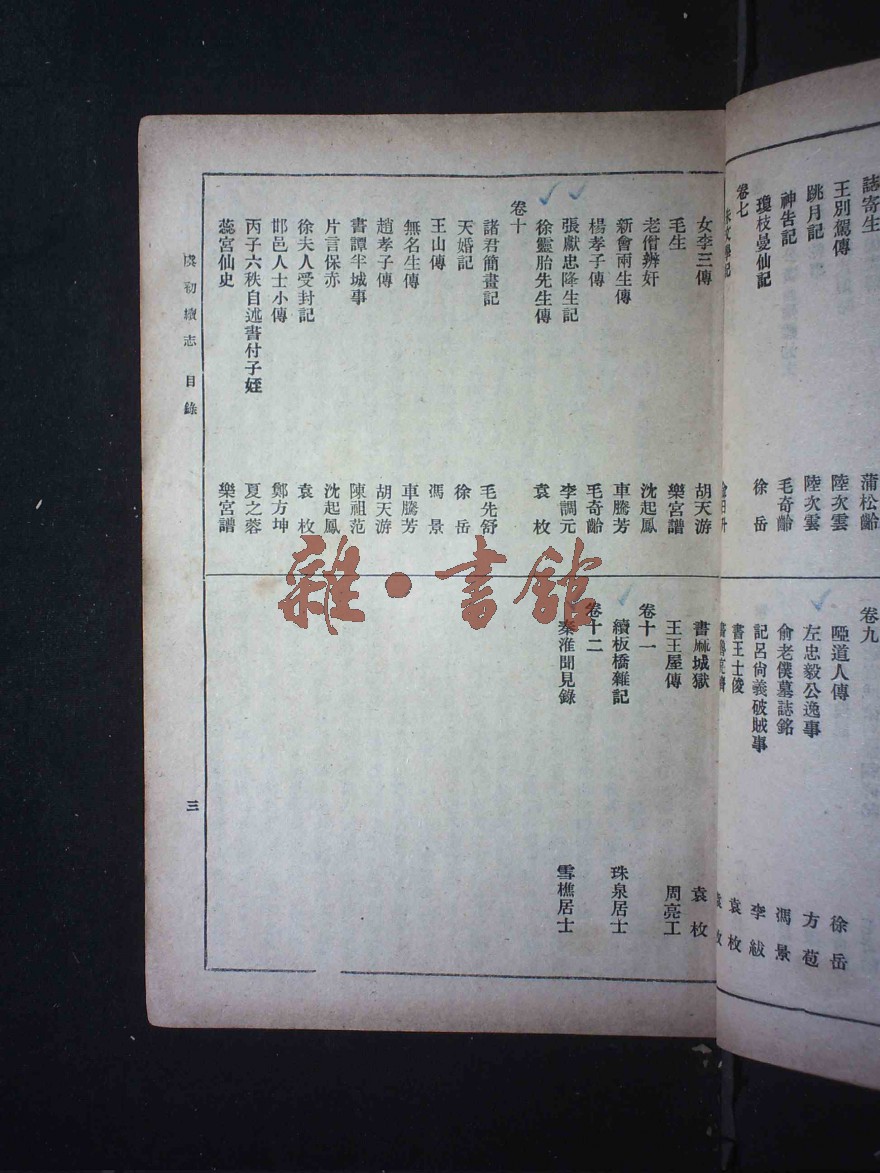 誌寄生 蒲松齡
王別駕傳 陸次雲
跳月記 陸次雲
神告記 毛奇齡
瓊枝曼仙記 徐岳
卷七
卷九
啞道人傳 徐岳
左忠毅公逸事 方苞
俞老僕墓誌銘 馮景
記呂尙義破賊事 李紱
書王士俊 袁枚
女李三傳 胡天游
毛生 樂宮譜
老僧辨奸 沈起鳳
新會兩生傳 車騰芳
楊孝子傳 毛奇齡
張獻忠降生記 李調元
徐靈胎先生傳 袁枚
卷十
諸君簡畫記 毛先舒
天婚記 徐岳
王山傳 馮景
無名生傳 車騰芳
趙孝子傳 胡天游
書譚半城事 陳祖范
片言保赤 沈起鳳
徐夫人受封記 袁枚
邯邑人士小傳 鄭方坤
丙子六秩自述書付子姪 夏之蓉
蕊宮仙史 樂宮譜
書麻城獄 袁枚
王王屋傳 周亮工
卷十一
續板橋雜記 珠泉居士
卷十二
秦淮聞見錄 雪樵居士
虞初續志 目錄
三
雜·書館